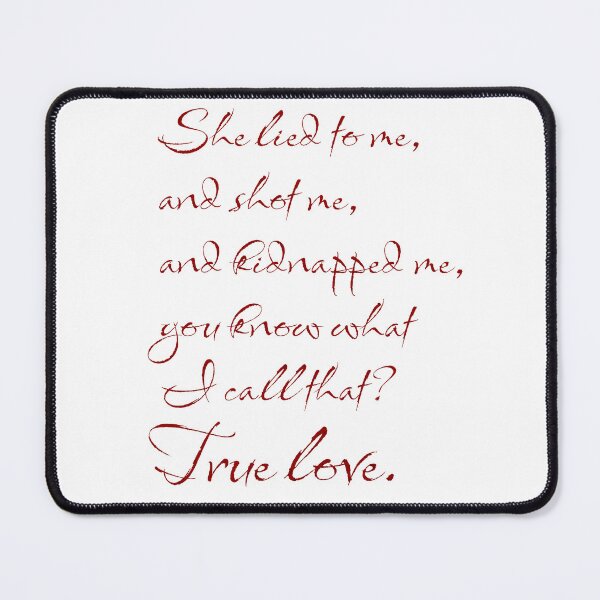 She lied to me,
and shot me,
and kidnapped me,
you know what
I call that?
True love.